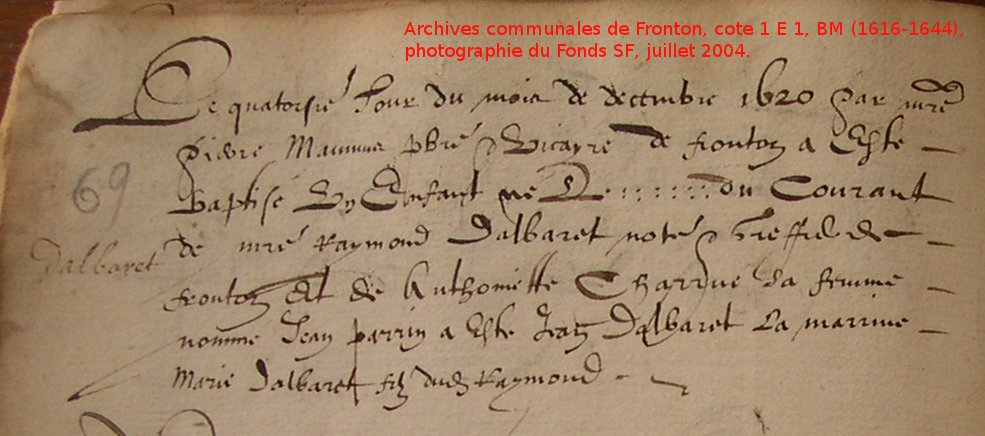 Archives communales de Fronton, cote 1 E 1, BM (1616-1644),
photographie du Fonds SF, juillet 2004.
Le quatorsie Jour du mois de decembre 1620 par mre
pierre pbre & vicayre de fronton a Este
69
Baptise Un Enfant ne Le ....... du Courant
Dalbaret
de mre Raymond Dalbaret note & greffie de
fronton Et de Anthoinette Charrue sa femme
nomme Jean parrin a Este Jean Dalbaret La marrine
Marie Dalbaret dud Raymond